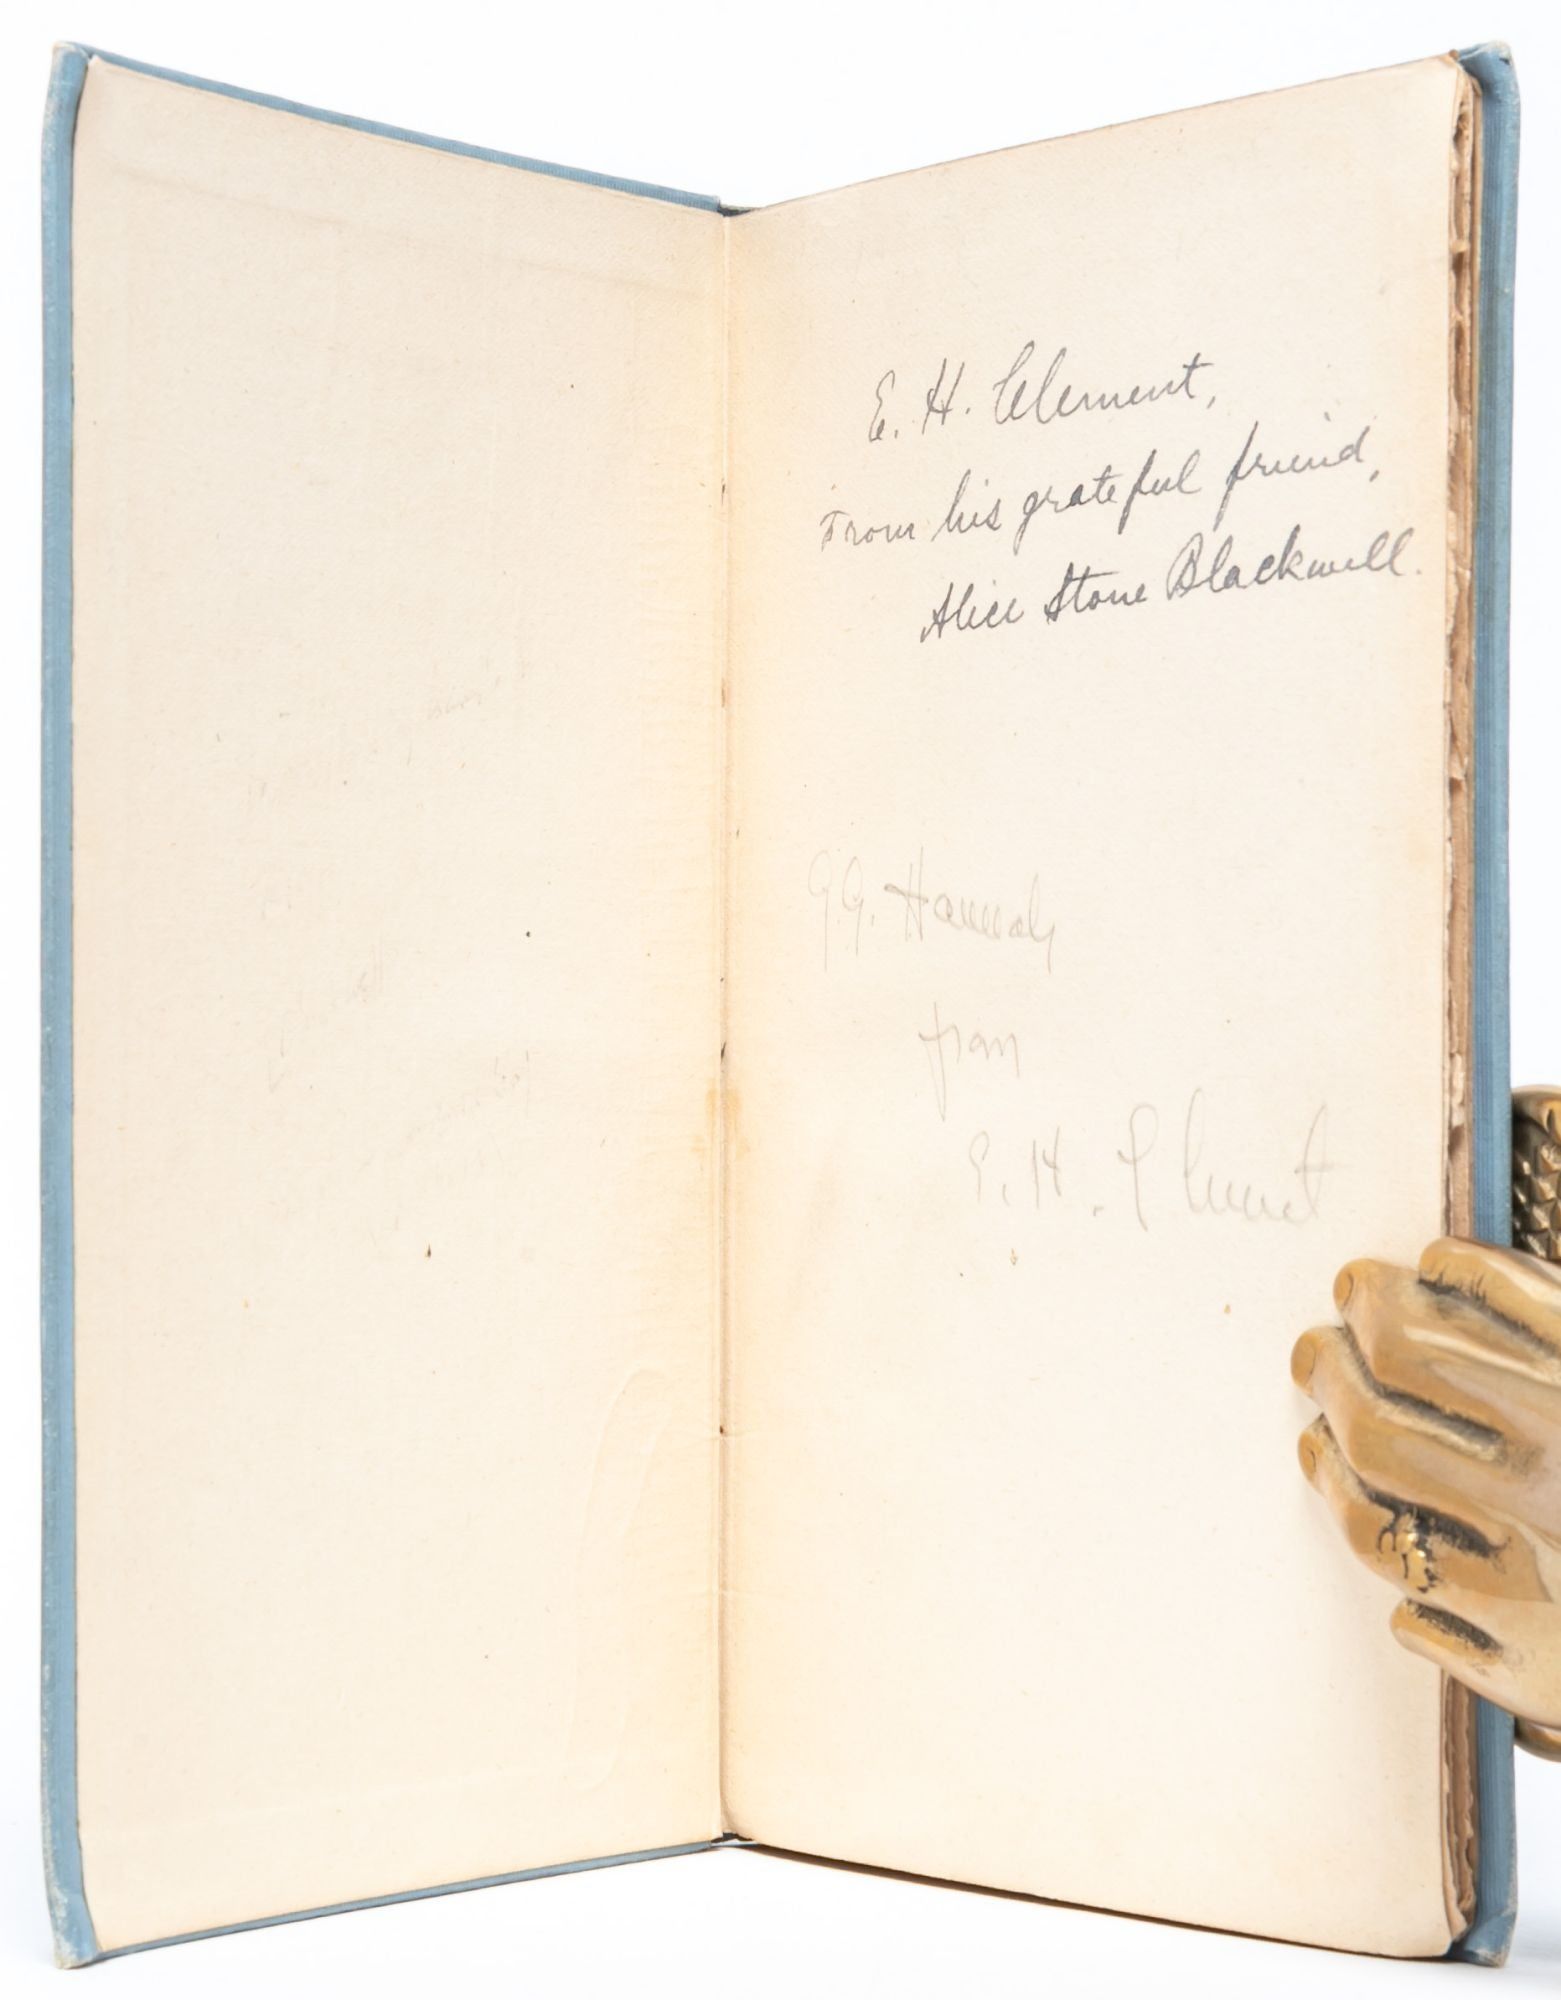 E. H. Clement,
From his grateful friend,
Alice Stone Blackwell.
G.G. Hannah
from
E. H. Clement